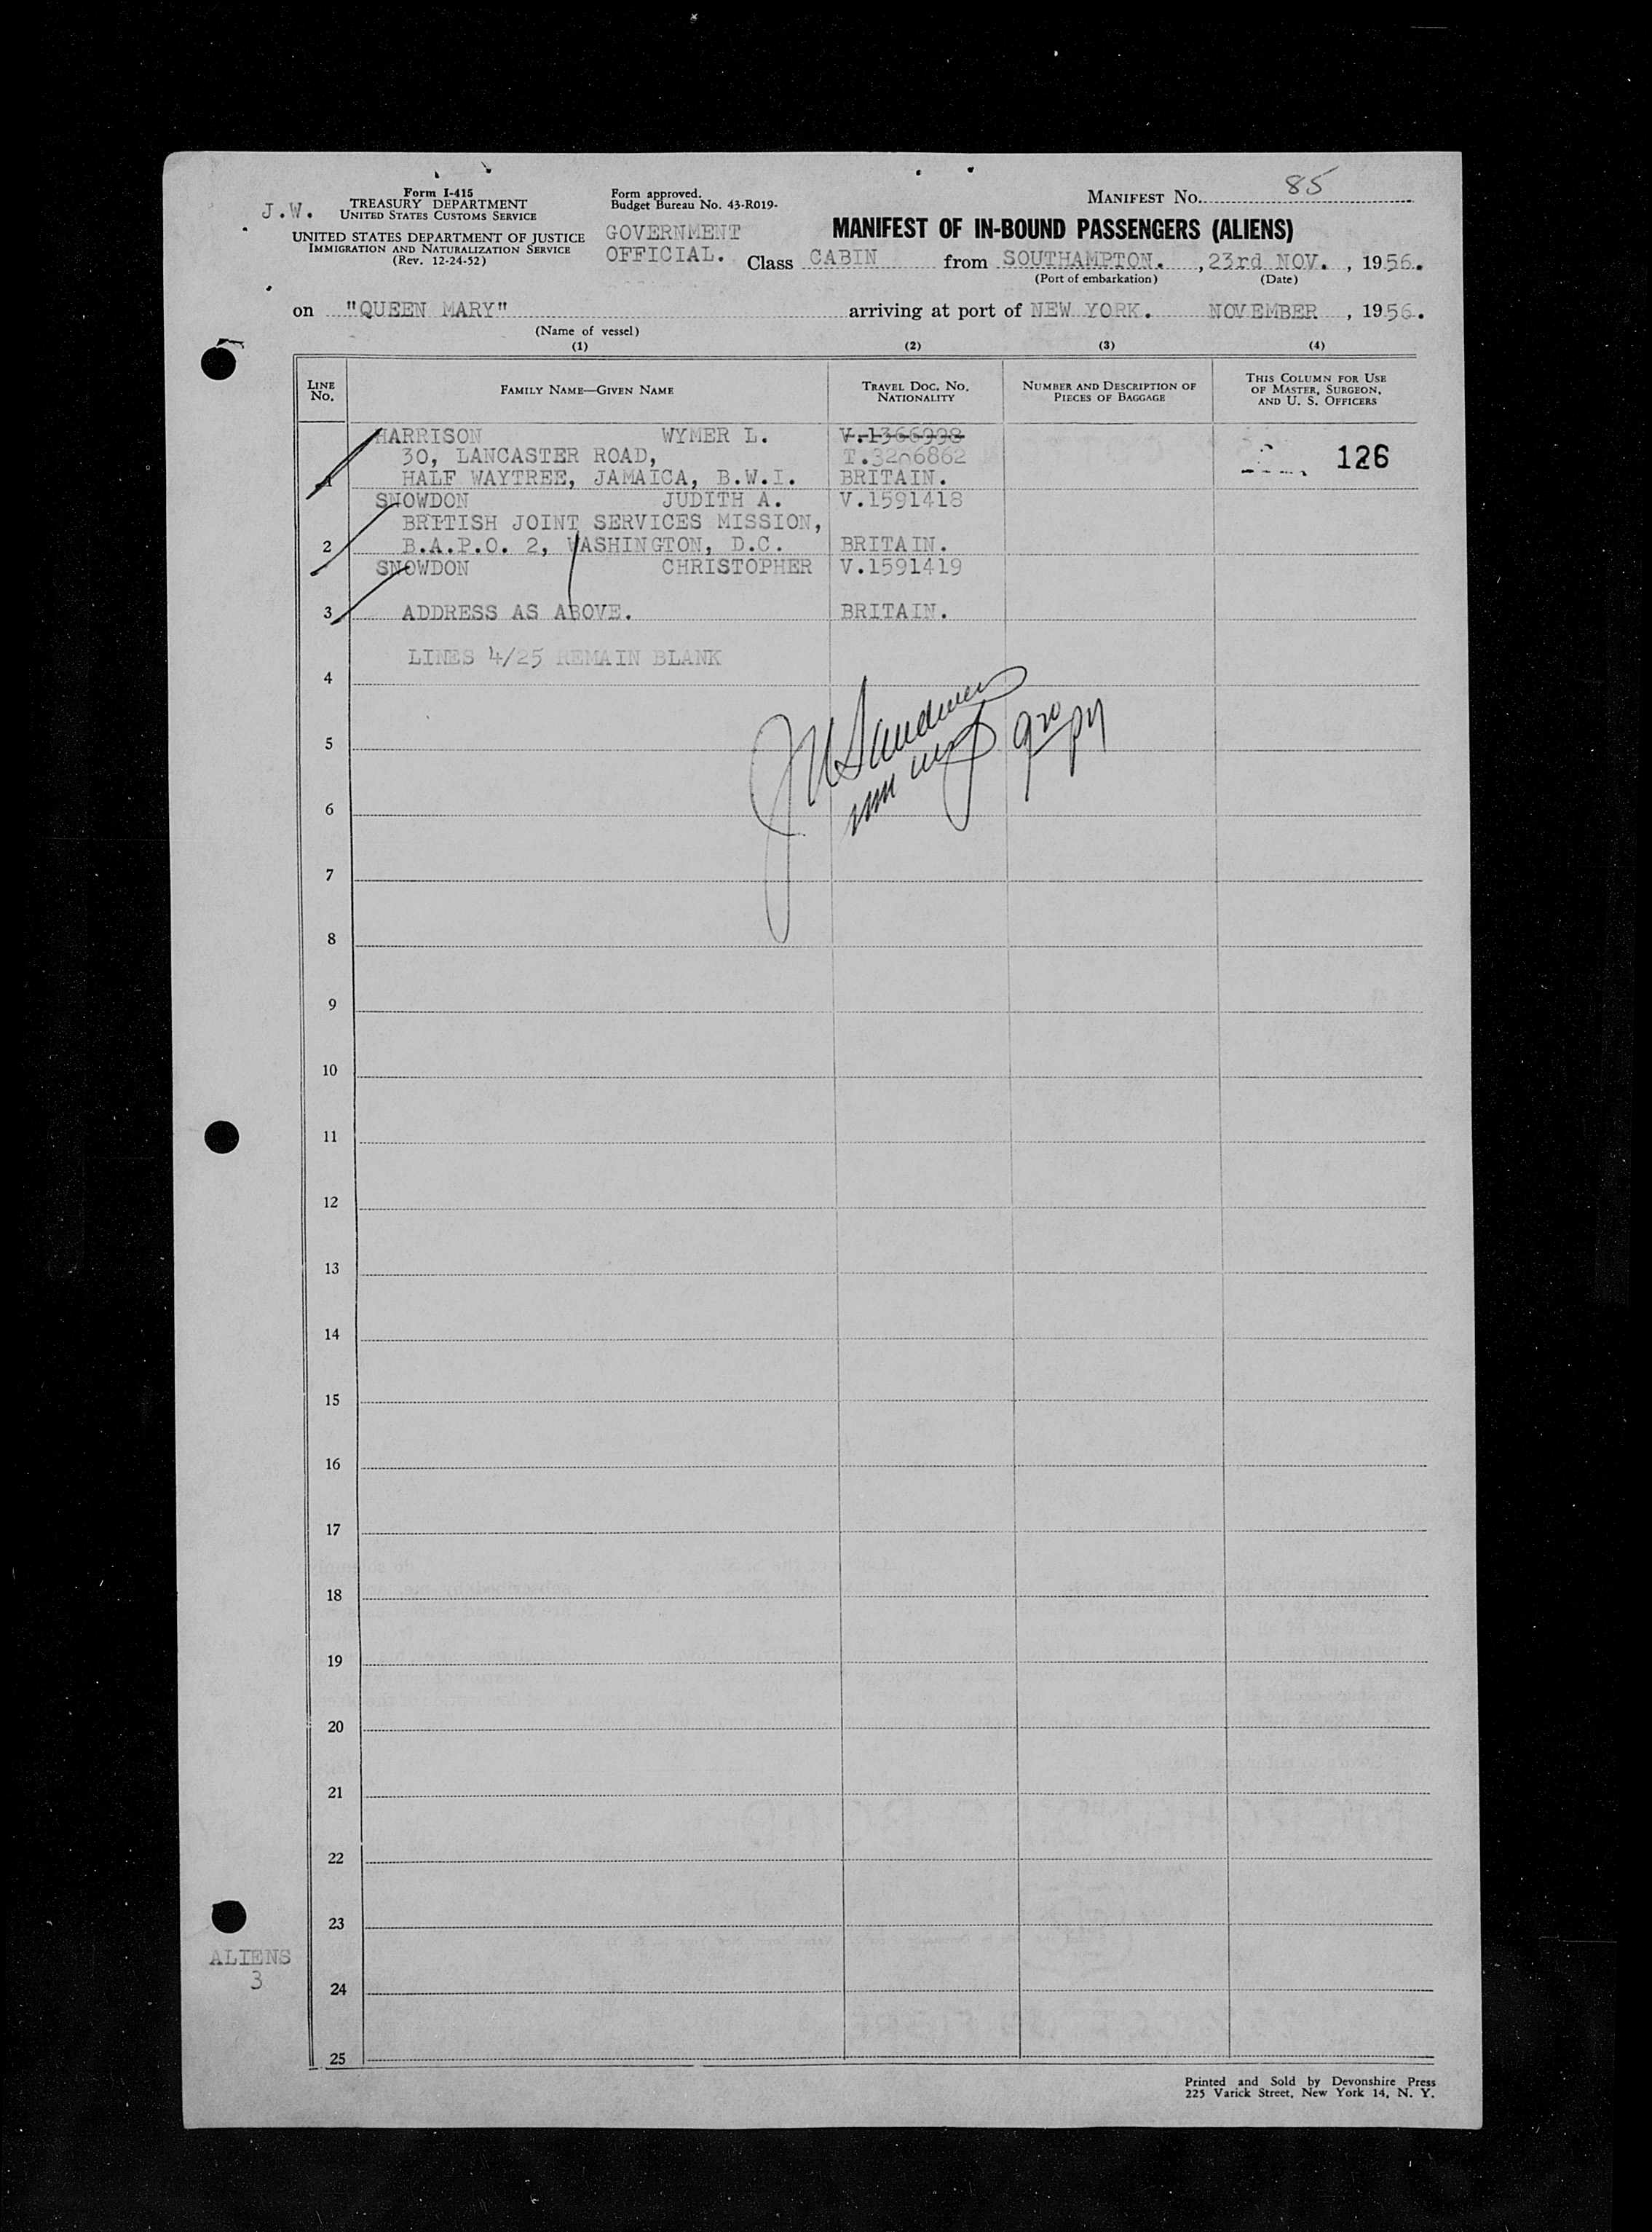 J.W.
Form I-415
TREASURY DEPARTMENT
UNITED STATES CUSTOMS SERVICE
UNITED STATES DEPARTMENT OF JUSTICE
IMMIGRATION AND NATURALIZATION SERVICE
(Rev. 12-24-52)
Form approved.
Budget Bureau No. 43-R019-
GOVERNMENT
OFFICIAL.
MANIFEST NO. 85
MANIFEST OF IN-BOUND PASSENGERS (ALIENS)
Class CABIN from SOUTHAMPTON. , 23rd NOV. , 1956.
(Port of embarkation) (Date)
on "QUEEN MARY" arriving at port of NEW YORK. NOVEMBER , 1956.
(Name of vessel)
(1) (2) (3) (4)
LINE NO.
FAMILY NAME—GIVEN NAME
TRAVEL DOC. NO. NATIONALITY
NUMBER AND DESCRIPTION OF PIECES OF BAGGAGE
THIS COLUMN FOR USE OF MASTER, SURGEON, AND U. S. OFFICERS
HARRISON WYMER L. V.1366998
30, LANCASTER ROAD, T.3206862 126
1 HALF WAYTREE, JAMAICA, B.W.I. BRITAIN.
SNOWDON JUDITH A. V.1591418
BRITISH JOINT SERVICES MISSION,
2 B.A.P.O. 2, WASHINGTON, D.C. BRITAIN.
SNOWDON CHRISTOPHER V.1591419
3 ADDRESS AS ABOVE. BRITAIN.
LINES 4/25 REMAIN BLANK
4
5
6
7
8
9
10
11
12
13
14
15
16
17
18
19
20
21
22
23
24
25
ALIENS
3
Printed and Sold by Devonshire Press
225 Varick Street, New York 14, N. Y.